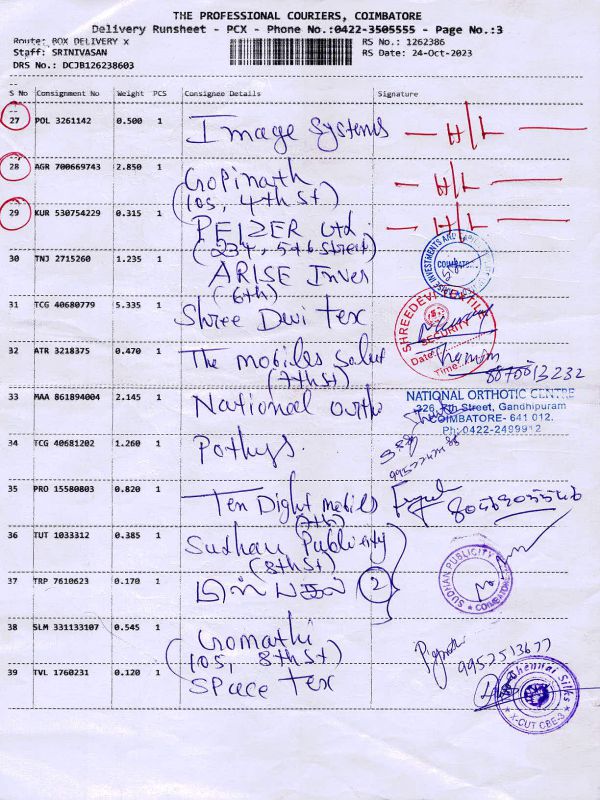 THE PROFESSIONAL COURIERS, COIMBATORE
Delivery Runsheet - PCX - Phone No.:0422-3505555 - Page No.:3
Route: BOX DELIVERY x
RS No.: 1262386
Staff: SRINIVASAN
RS Date: 24-Oct-2023
DRS No.: DCJB126238603
S No Consignment No Weight PCS Consignee Details Signature
27 POL 3261142 0.500 1 Image Systems H/L
28 AGR 700669743 2.850 1 Gopinath H/L
(105, 4th St)
29 KUR 530754229 0.315 1 PEIZER Ltd. H/L
(234, 5th Street)
30 TNJ 2715260 1.235 1 ARISE Inves
(6th)
COIMBATORE
31 TCG 40680779 5.335 1 Shree Devi Tex
SHREEDEVI TEXTILE
SECURITY
Date:
Time:
32 ATR 3218375 0.470 1 The mobiles
(7th St)
8070013232
33 MAA 861894004 2.145 1 National ortho
NATIONAL ORTHOTIC CENTRE
226, 7th Street, Gandhipuram
COIMBATORE- 641 012.
Ph: 0422-2499912
34 TCG 40681202 1.260 1 Pothys.
35 PRO 15580803 0.820 1 Ten Dight mobils
(7th)
36 TUT 1033312 0.385 1 Sudhan Publicity
(8th St)
SUDHAN PUBLICITY
COIMBATORE
37 TRP 7610623 0.170 1 2
38 SLM 331133107 0.545 1 Gomathi
(105, 8th St)
9952513677
39 TVL 1760231 0.120 1 Space Tex
Chennai Silks
X-CUT CBE-3